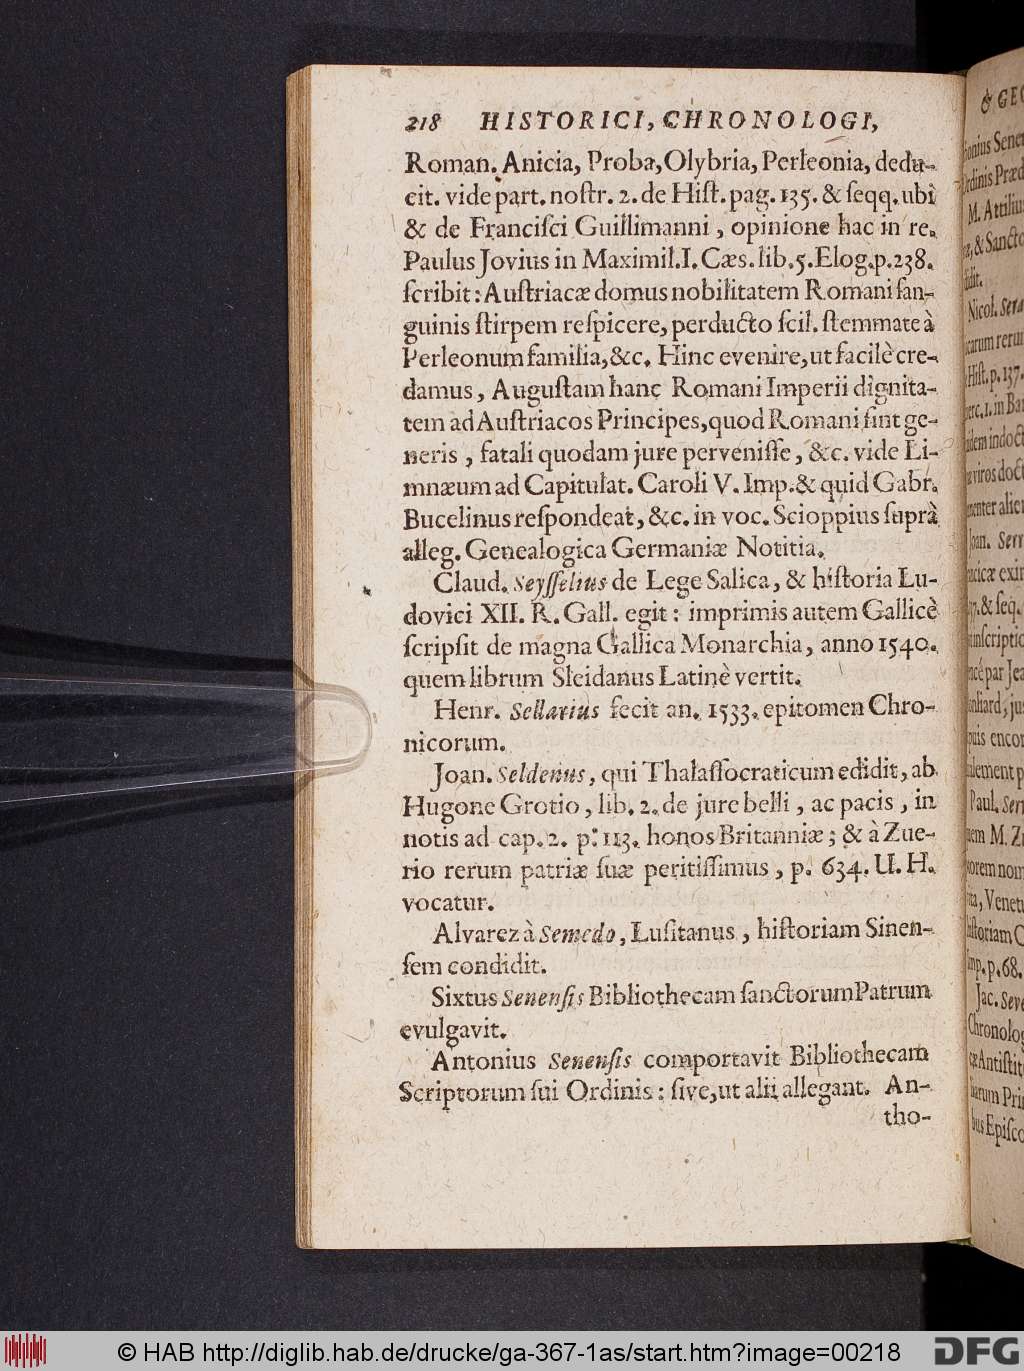 218 HISTORICI, CHRONOLOGI,
Roman. Anicia, Proba, Olybria, Perleonia, dedu-
cit. vide part. noſtr. 2. de Hiſt. pag. 135. & ſeqq. ubi
& de Franciſci Guillimanni, opinione hac in re.
Paulus Jovius in Maximil. I. Cæs. lib. 5. Elog. p. 238.
ſcribit: Auſtriacæ domus nobilitatem Romani ſan-
guinis ſtirpem reſpicere, perducto ſcil. ſtemmate à
Perleonum familia, &c. Hinc evenire, ut facilè cre-
damus, Auguſtam hanc Romani Imperii dignita-
tem ad Auſtriacos Principes, quod Romani ſint ge-
neris, fatali quodam jure perveniſſe, &c. vide Li-
mnæum ad Capitulat. Caroli V. Imp. & quid Gabr.
Bucelinus reſpondeat, &c. in voc. Scioppius ſuprà
alleg. Genealogica Germaniæ Notitia.
Claud. Seyſſelius de Lege Salica, & hiſtoria Lu-
dovici XII. R. Gall. egit: imprimis autem Gallicè
ſcripſit de magna Gallica Monarchia, anno 1540.
quem librum Sleidanus Latinè vertit.
Henr. Sellarius fecit an. 1533. epitomen Chro-
nicorum.
Joan. Seldenus, qui Thalaſſocraticum edidit, ab
Hugone Grotio, lib. 2. de jure belli, ac pacis, in
notis ad cap. 2. p. 113. honos Britanniæ; & à Zue-
rio rerum patriæ ſuæ peritiſſimus, p. 634. U. H.
vocatur.
Alvarez à Semedo, Luſitanus, hiſtoriam Sinen-
ſem condidit.
Sixtus Senenſis Bibliothecam ſanctorum Patrum
evulgavit.
Antonius Senenſis comportavit Bibliothecam
Scriptorum ſui Ordinis: ſive, ut alii allegant. An-
tho-
& GEO
onius Sene
rdinis Præd
M. Attiliu
& Sancto
dit.
Nicol. Sera
carum rerum
Hiſt. p. 137.
erc. 1. in Bar
idem indoct
viros doct
menter alie
Joan. Serr
acicæ exim
& ſeq.
inſcriptio
par Jea
nliard, ju
puis encor
lement p
Paul. Ser
uem M. Z
orem nom
ita, Venet
hiſtoriam C
Imp. p. 68.
Jac. Seve
Chronolog
cæ Antiſtit
iarum Prin
bus Epiſco
© HAB http://diglib.hab.de/drucke/ga-367-1as/start.htm?image=00218
DFG